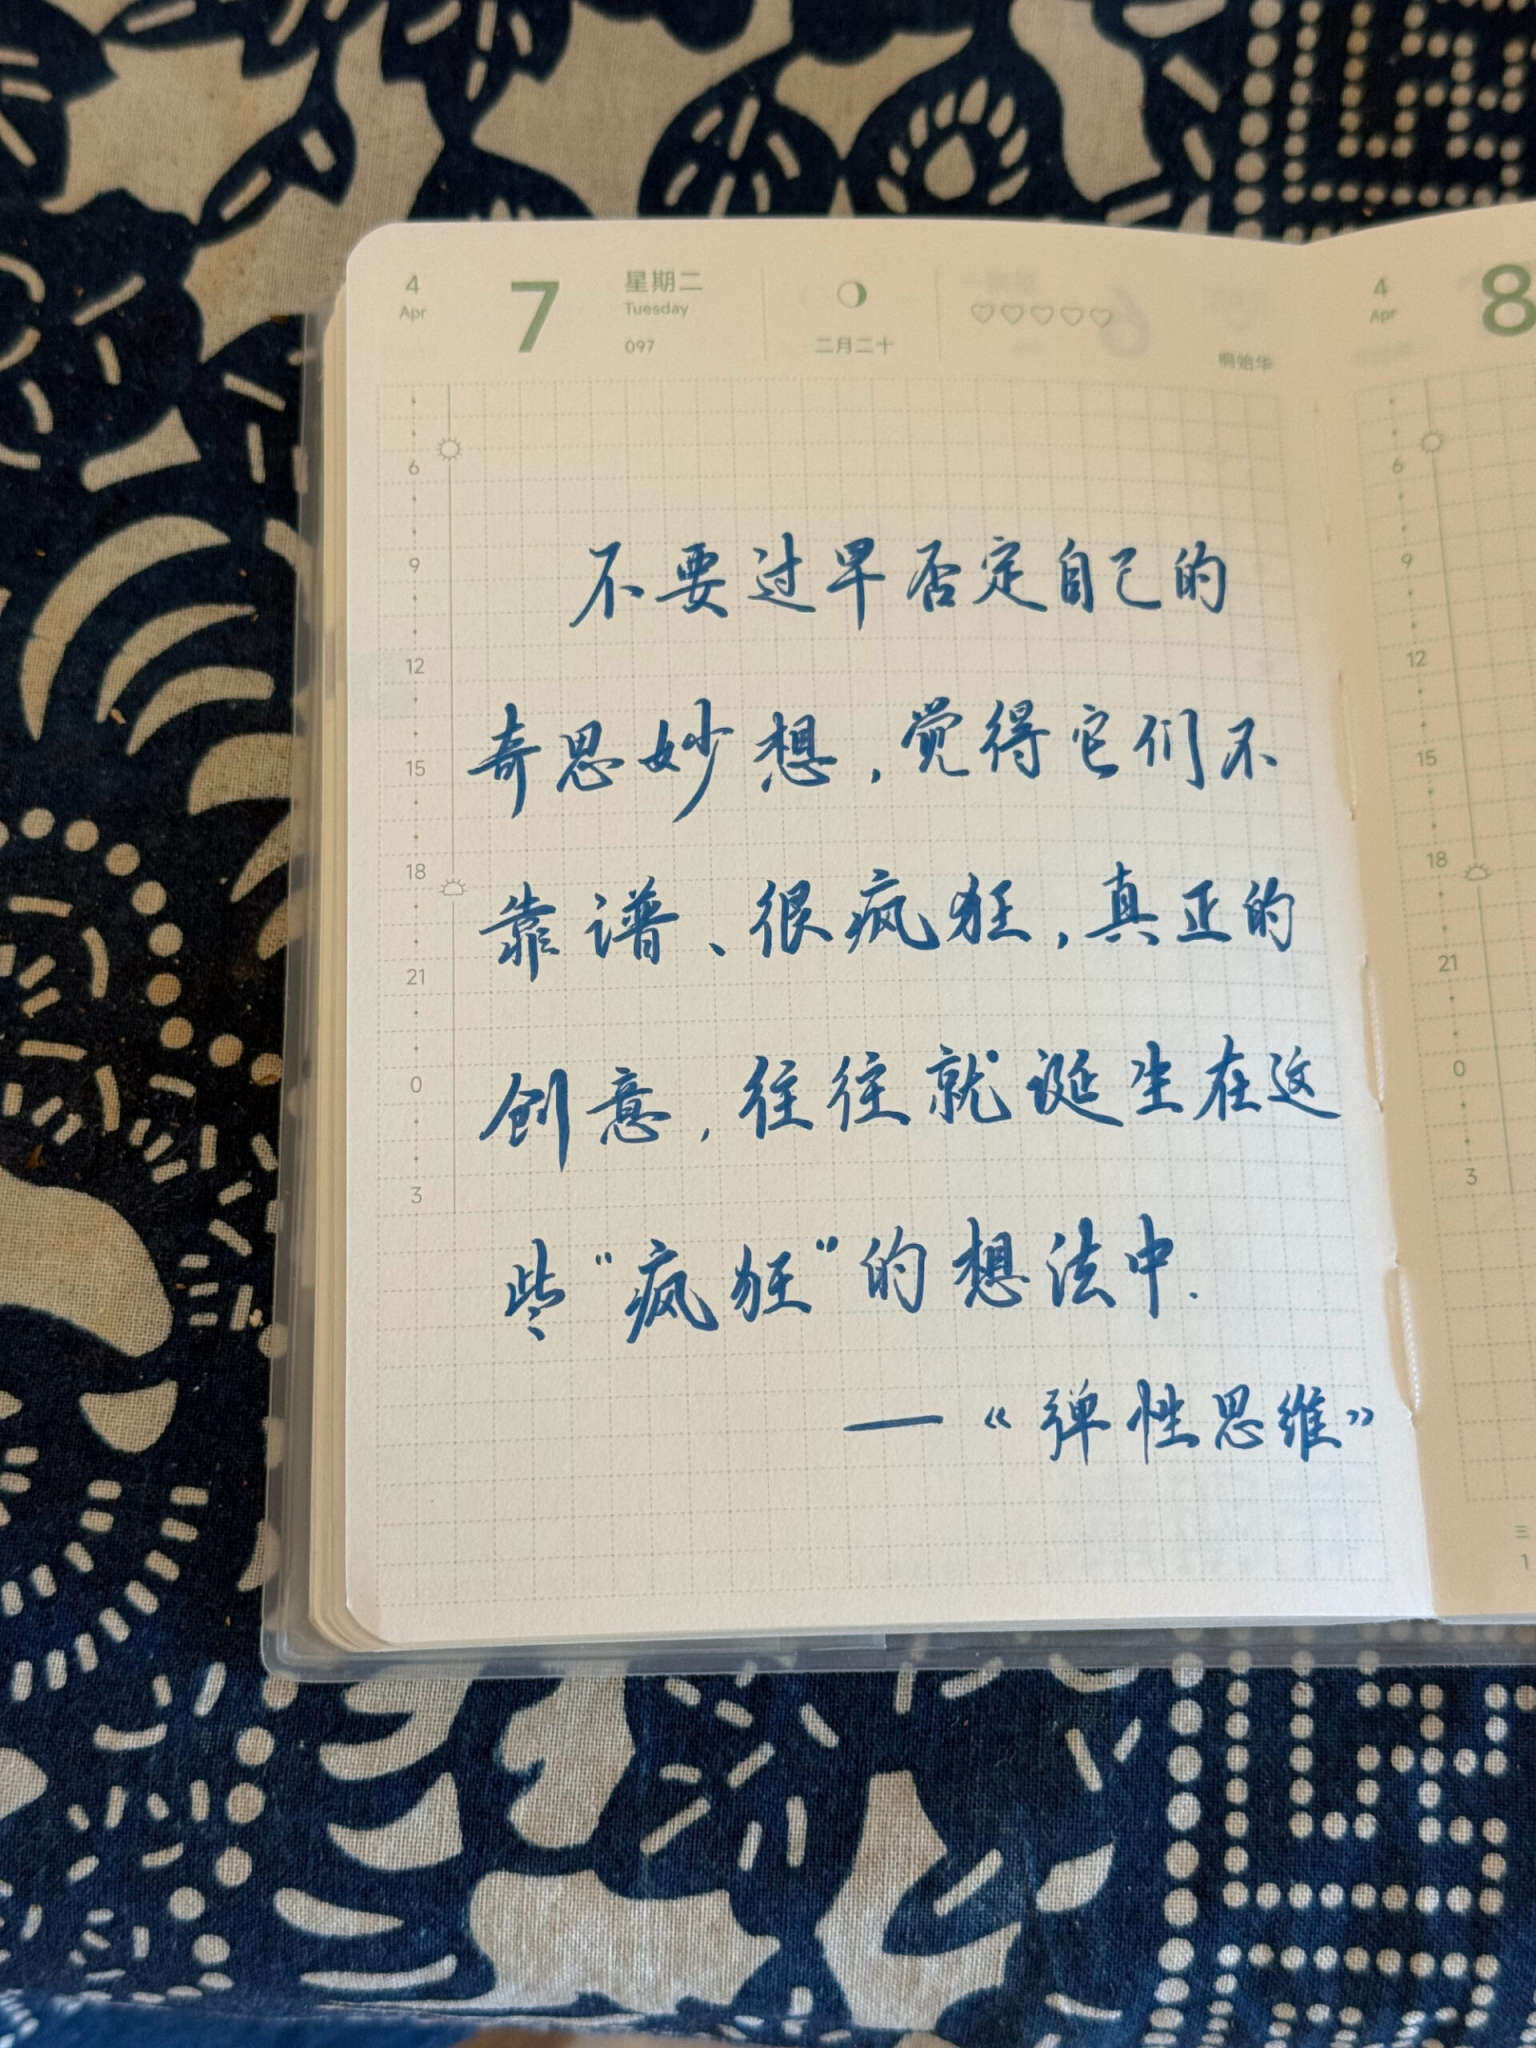 4
Apr
7
星期二
Tuesday
097
二月二十
桐始华
4
Apr
8
6
9
12
15
18
21
0
3
6
9
12
15
18
21
0
3
不要过早否定自己的
奇思妙想,觉得它们不
靠谱、很疯狂,真正的
创意,往往就诞生在这
些“疯狂”的想法中.
—《弹性思维》
三
1